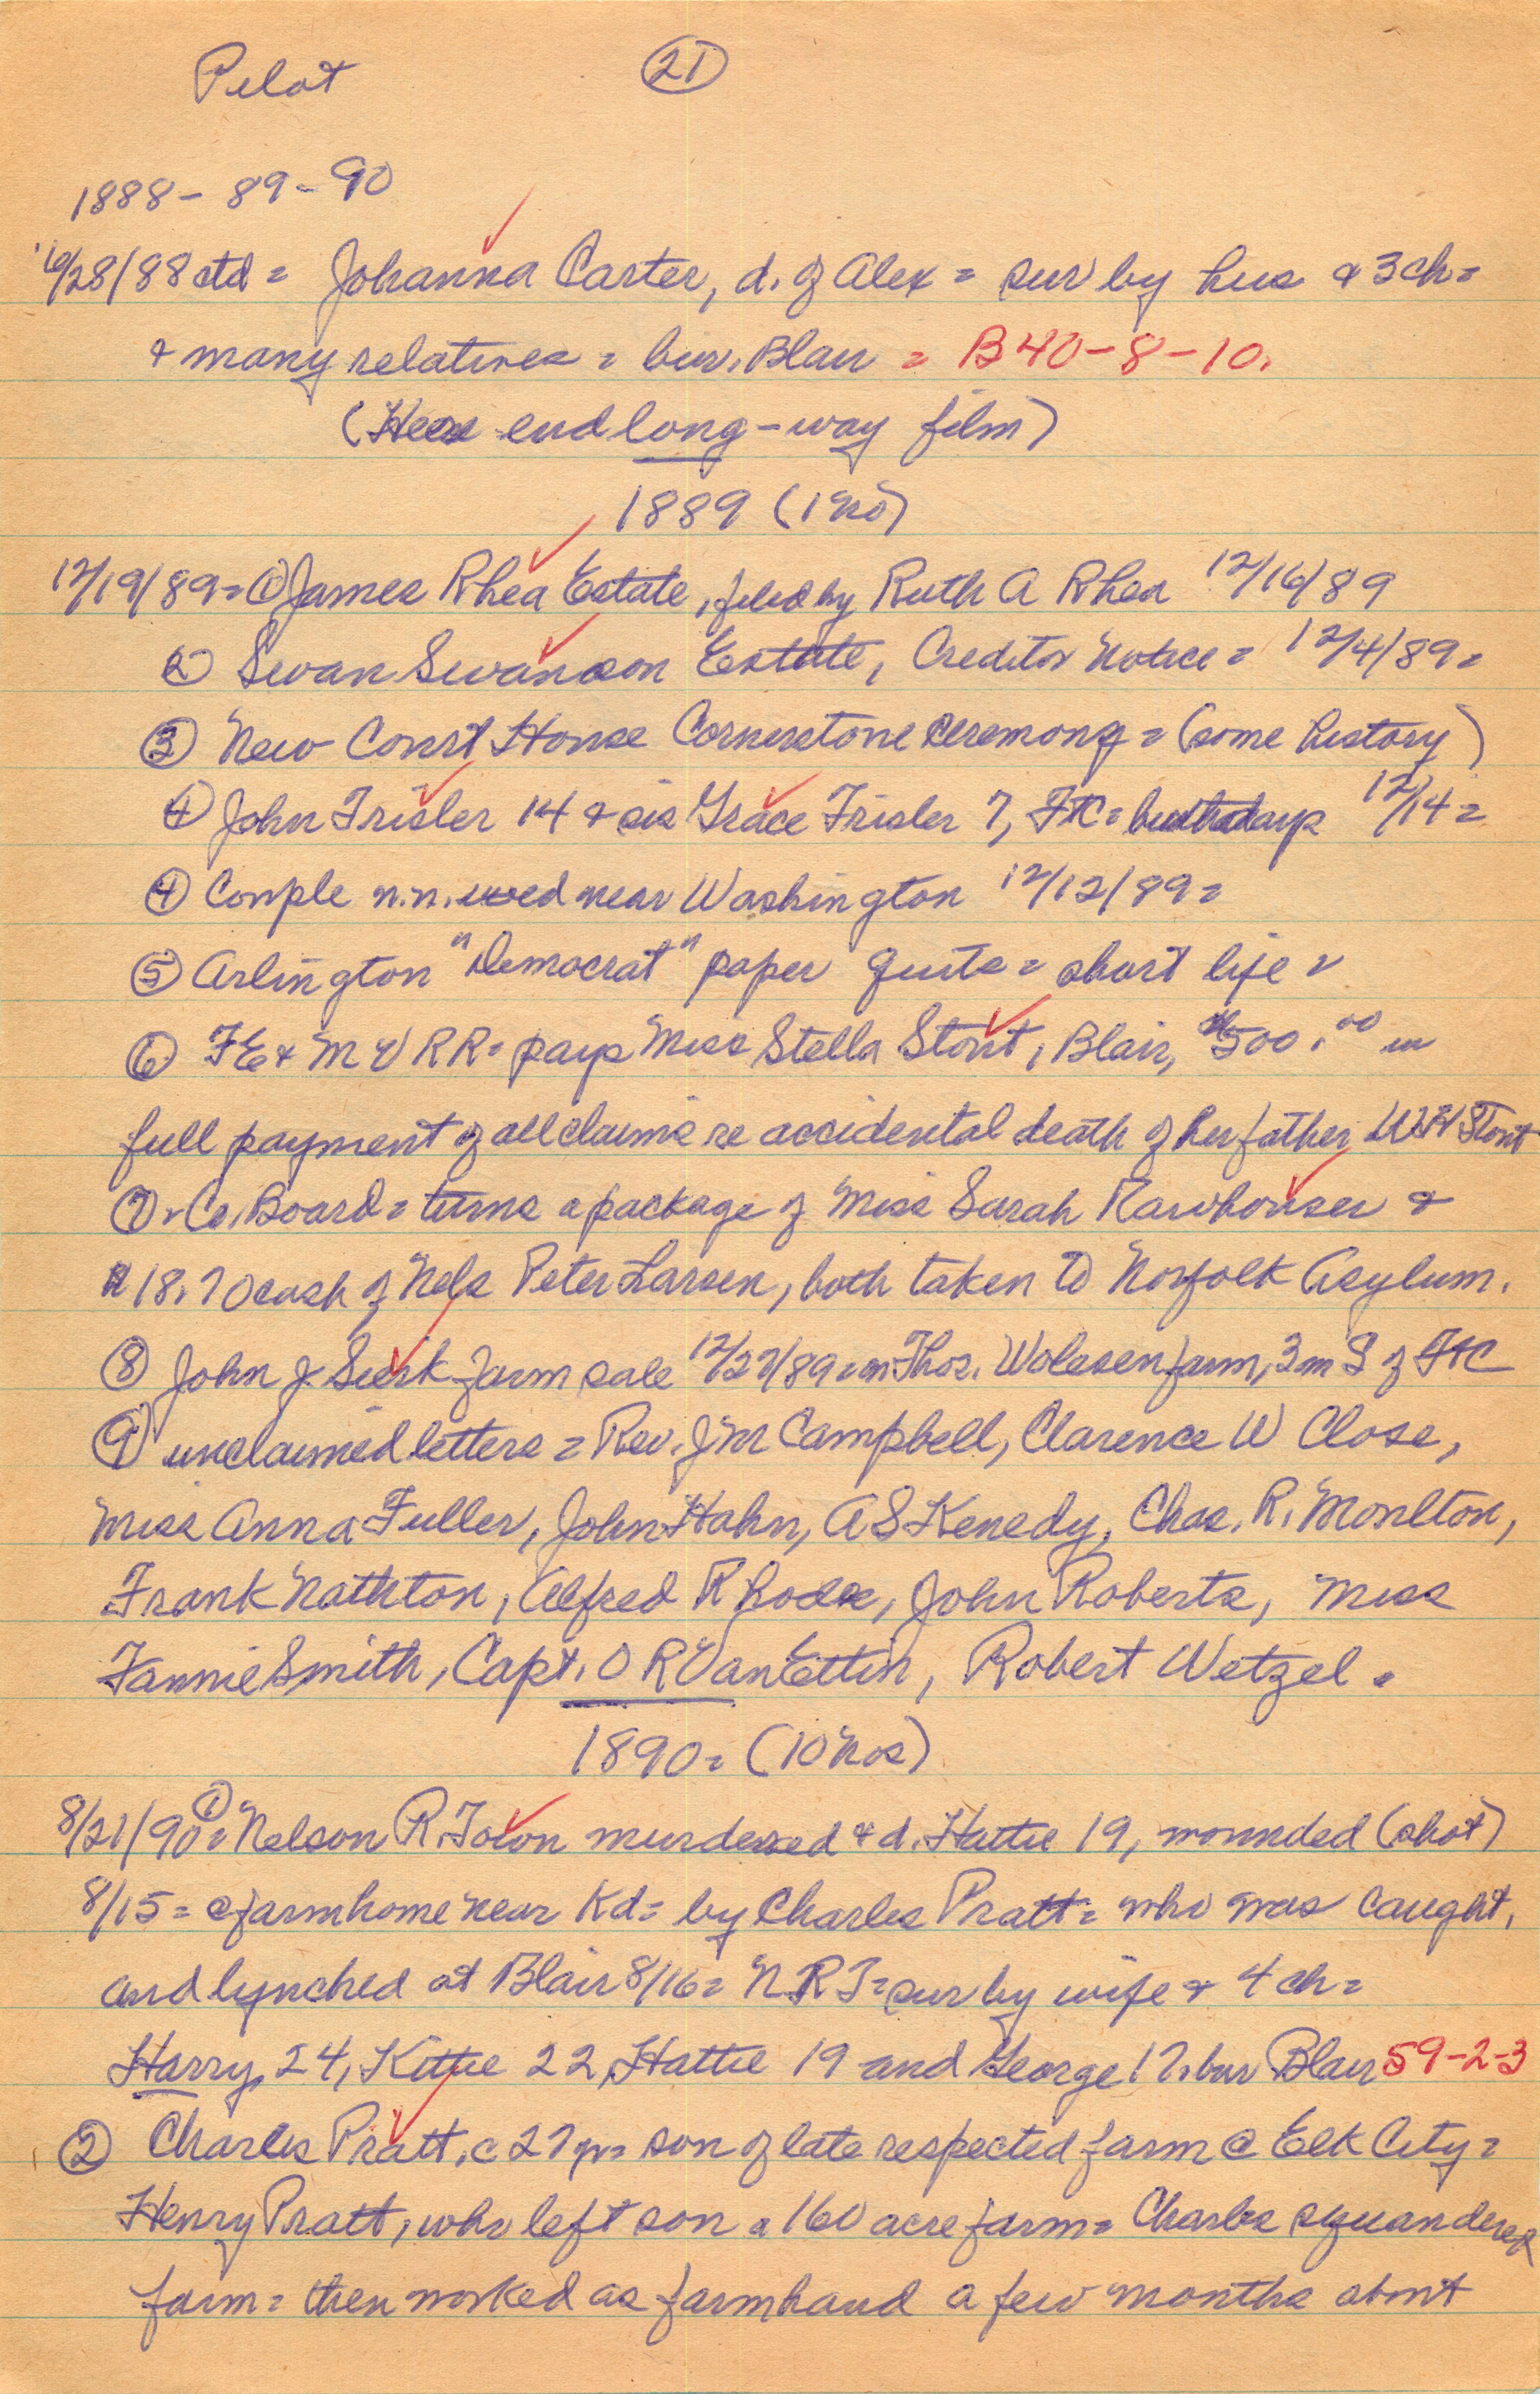 Pilot 21
1888 - 89 - 90
10/28/88 ctd = Johanna Carter, d. of Alex = sur by hus & 3 ch =
& many relatives = bur. Blair = B40-8-10.
(Here end long-way film)
1889 (1 No)
12/19/89 = ① James Rhea Estate, filed by Ruth A Rhea 12/16/89
② Swan Swanson Estate, Creditor Notice = 12/4/89 =
③ New Court House Cornerstone Ceremony = (some history)
④ John Trisler 14 & sis Grace Trisler 7, FtC = birthdays 12/14 =
④ Couple n.n. wed near Washington 12/12/89 =
⑤ Arlington "Democrat" paper quits = short life =
⑥ FE & MV RR = pays Miss Stella Stout, Blair, $500.00 in
full payment of all claims re accidental death of her father WH Stout
⑦ = Co. Board = turns a package of Miss Sarah Rawhouser &
$18.70 cash of Nels Peter Larsen, both taken to Norfolk Asylum.
⑧ John J. Sierk farm sale 12/27/89 = on Thos. Wolesen farm, 3 m S of FtC
⑨ unclaimed letters = Rev. JM Campbell, Clarence W Close,
Miss Anna Fuller, John Hahn, AS Kenedy, Chas. R. Moulton,
Frank Nathton, Alfred Rhode, John Roberts, Miss
Fannie Smith, Capt. O R Van Ettin, Robert Wetzel =
1890 = (10 Nos)
8/21/90 = ① Nelson R. Town murdered & d. Hattie 19, wounded (shot)
8/15 = @ farmhome near Kd = by Charles Pratt = who was caught,
and lynched at Blair 8/16 = N.R.T = sur by wife & 4 ch =
Harry, 24, Kittie 22, Hattie 19 and George 17. bur Blair 59-2-3
② Charles Pratt, c 27 yr = son of late respected farm @ Elk City =
Henry Pratt, who left son a 160 acre farm = Charles squandered
farm = then worked as farmhand a few months about